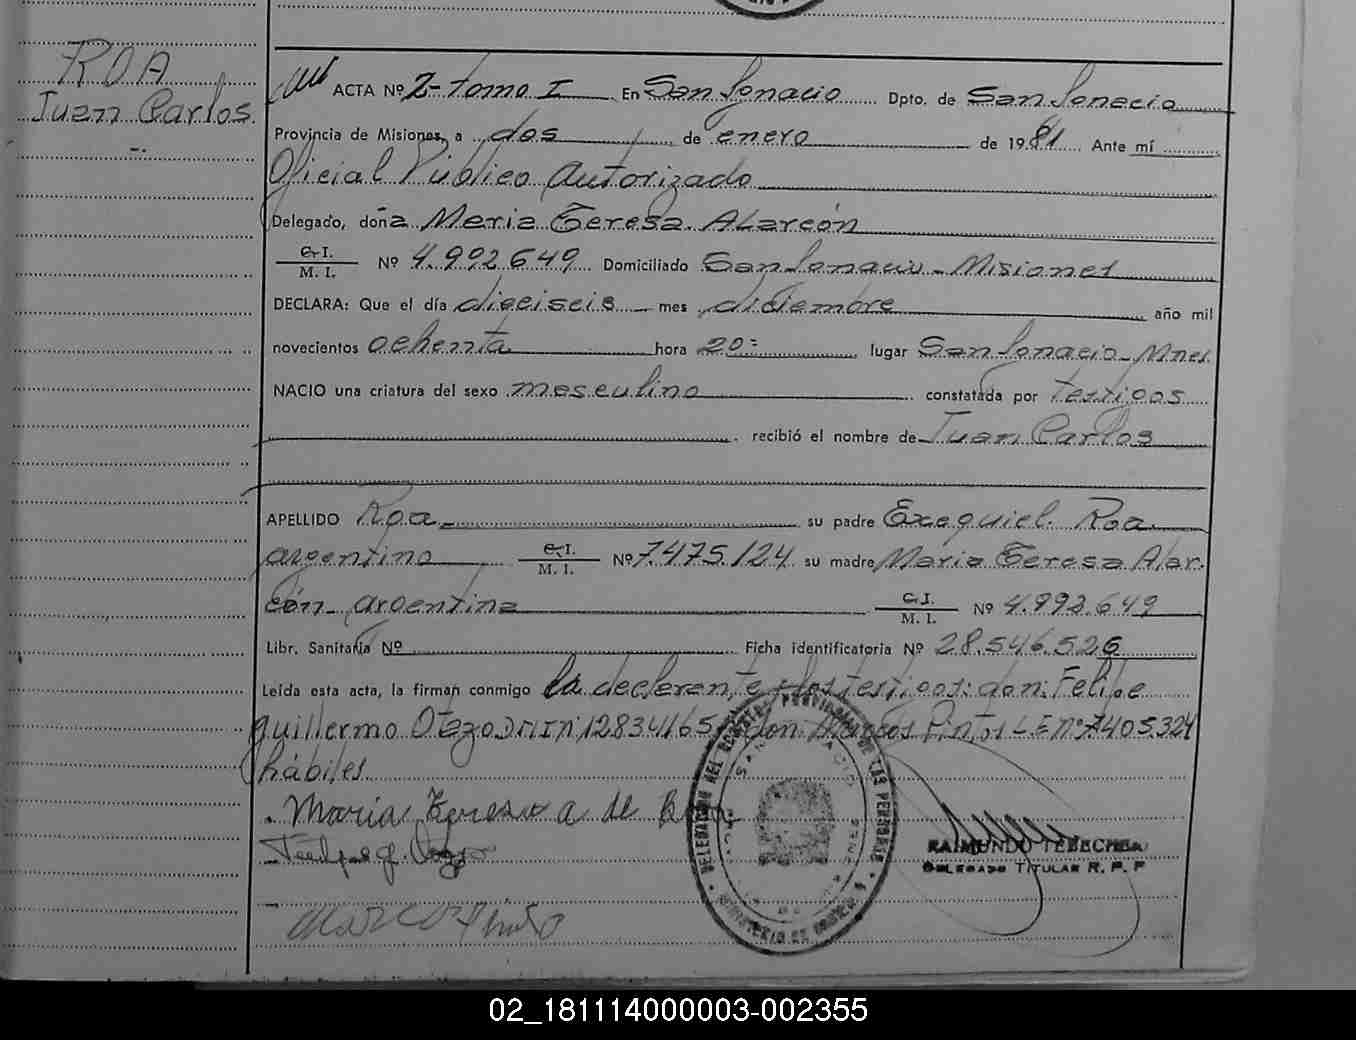 ROA
Juan Carlos.
ACTA Nº 2- tomo I En San Ignacio Dpto. de San Ignacio
Provincia de Misiones, a dos de enero de 1981 Ante mí
Oficial Público Autorizado
Delegado, doña Maria Teresa ALarcón
C. I.
M. I. Nº 4.992.649 Domiciliado San Ignacio - Misiones
DECLARA: Que el día dieciseis mes diciembre año mil
novecientos ochenta hora 20= lugar San Ignacio - Mnes.
NACIO una criatura del sexo masculino constatada por testigos
recibió el nombre de Juan Carlos
APELLIDO Roa su padre Exequiel Roa
argentino C. I. M. I. Nº 7.475.124 su madre Maria Teresa Alar-
cón argentina C. I. M. I. Nº 4.992.649
Libr. Sanitaria Nº Ficha identificatoria Nº 28.546.526
Leída esta acta, la firman conmigo la declarente y los testigos: don: Felipe
guillermo Otazo DNI Nº 12834165 y don Marcos Pintos L.E nº 7405324
hábiles
Maria Teresa A de Roa
Marcos Pinto
DELEGACION DEL REGISTRO PROVINCIAL DE LAS PERSONAS
SAN IGNACIO
MINISTERIO DE GOBIERNO
RAIMUNDO TEBECHIA
DELEGADO TITULAR R. P. P
02_181114000003-002355